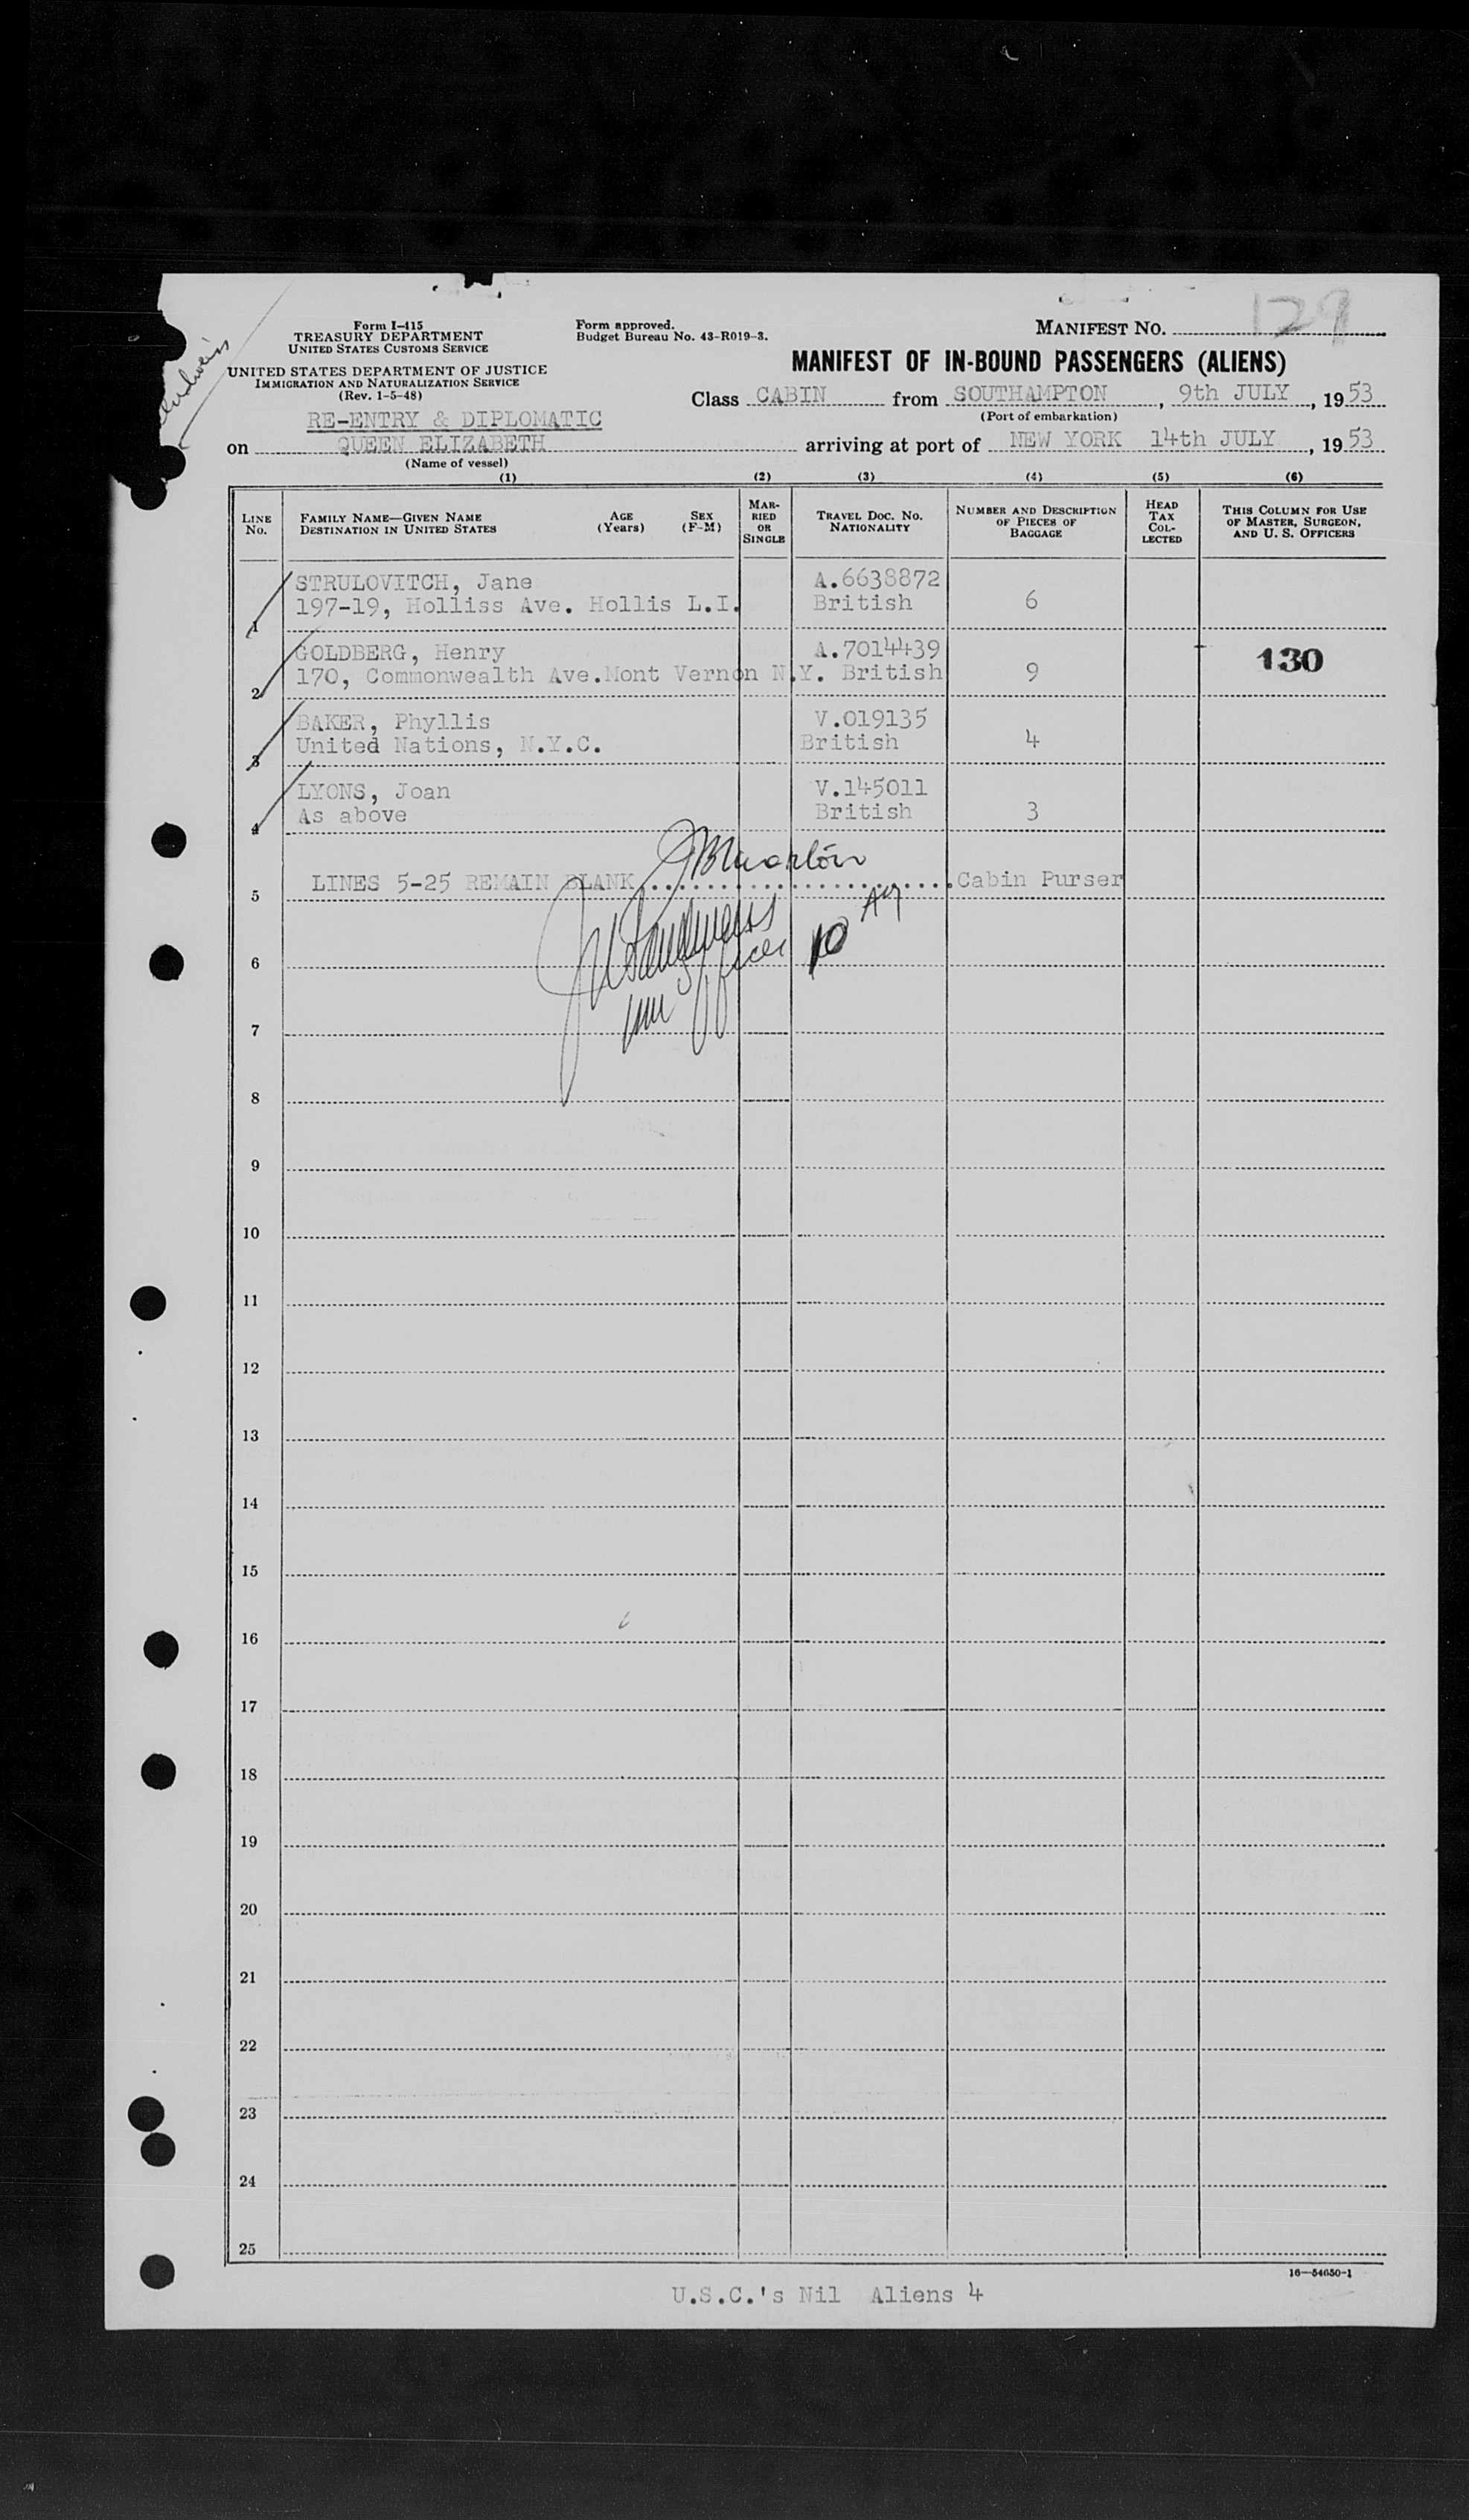 129
Form I-415
TREASURY DEPARTMENT
UNITED STATES CUSTOMS SERVICE
UNITED STATES DEPARTMENT OF JUSTICE
IMMIGRATION AND NATURALIZATION SERVICE
(Rev. 1-5-48)
Form approved.
Budget Bureau No. 43-R019-3.
MANIFEST NO.
MANIFEST OF IN-BOUND PASSENGERS (ALIENS)
Class CABIN from SOUTHAMPTON, 9th JULY, 1953
(Port of embarkation)
RE-ENTRY & DIPLOMATIC
on QUEEN ELIZABETH arriving at port of NEW YORK 14th JULY, 1953
(Name of vessel)
(1) (2) (3) (4) (5) (6)
LINE NO. FAMILY NAME—GIVEN NAME DESTINATION IN UNITED STATES AGE (Years) SEX (F-M) MARRIED OR SINGLE TRAVEL DOC. NO. NATIONALITY NUMBER AND DESCRIPTION OF PIECES OF BAGGAGE HEAD TAX COLLECTED THIS COLUMN FOR USE OF MASTER, SURGEON, AND U. S. OFFICERS
STRULOVITCH, Jane A.6638872
1 197-19, Holliss Ave. Hollis L.I. British 6
GOLDBERG, Henry A.7014439 130
2 170, Commonwealth Ave.Mont Vernon N.Y. British 9
BAKER, Phyllis V.019135
3 United Nations, N.Y.C. British 4
LYONS, Joan V.145011
4 As above British 3
5 LINES 5-25 REMAIN BLANK Cabin Purser
6
10
7
8
9
10
11
12
13
14
15
16
17
18
19
20
21
22
23
24
25
16—54650-1
U.S.C.'s Nil Aliens 4